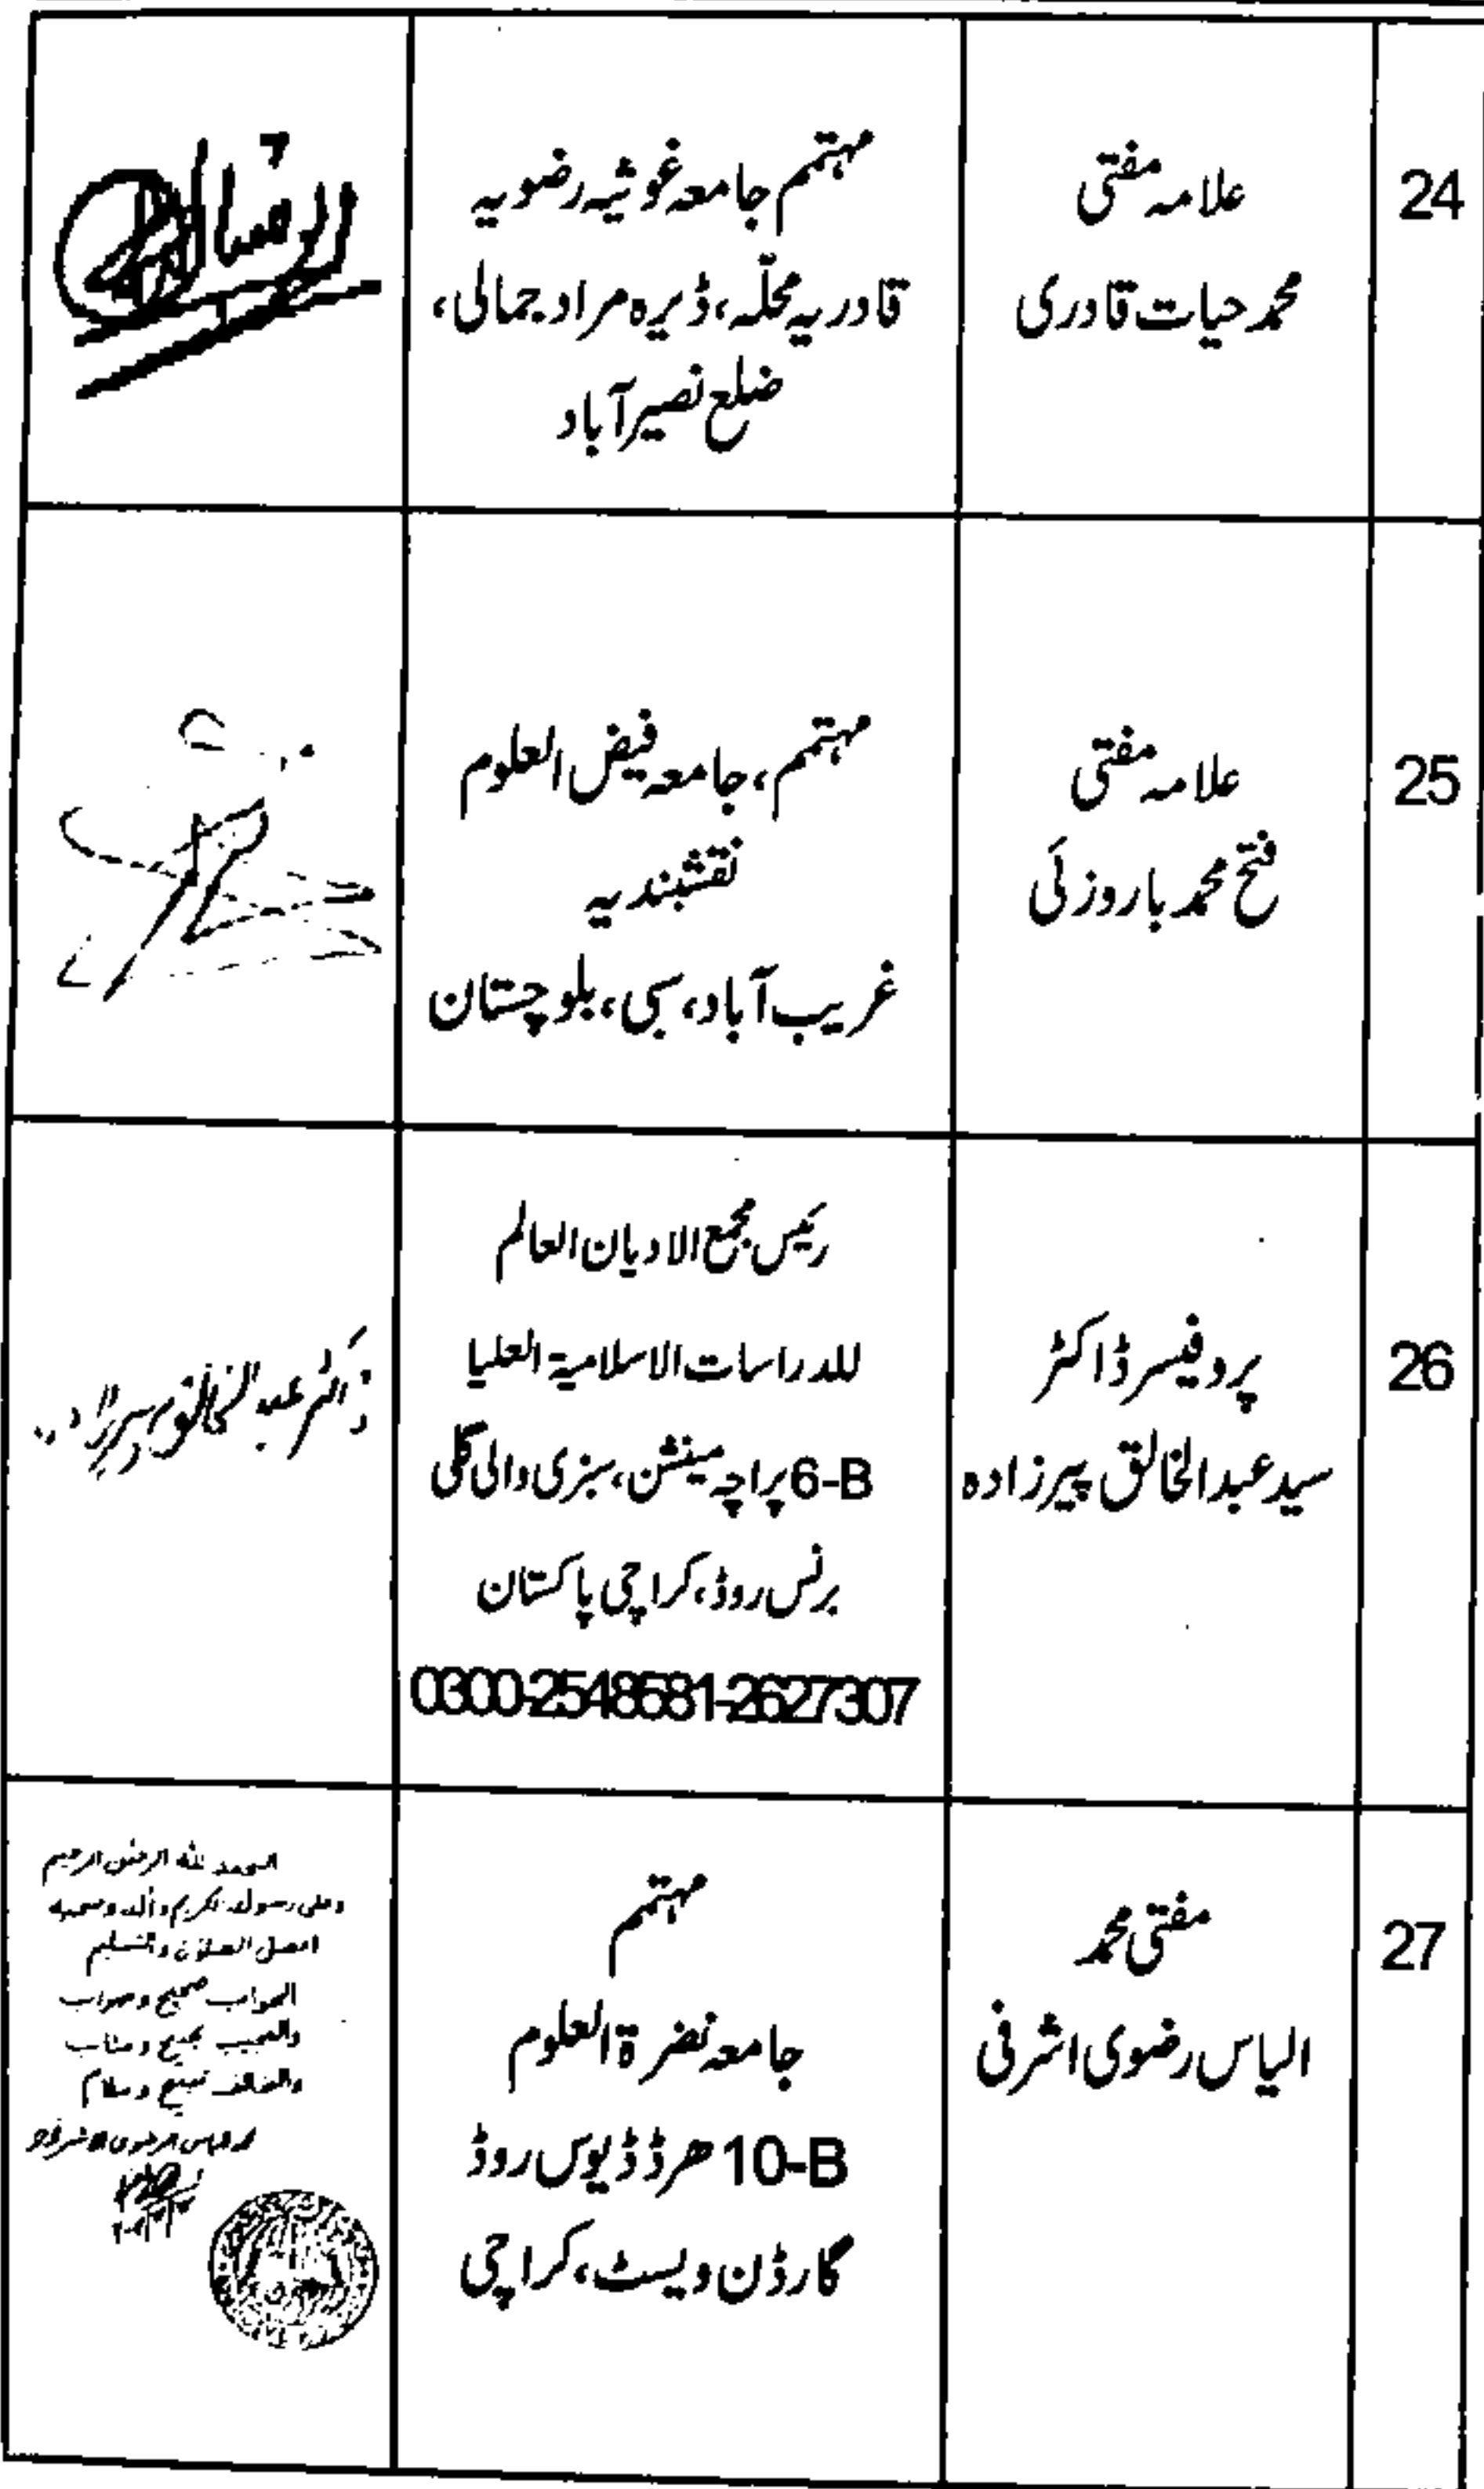 24
علامہ مفتی
محمد حیات قادری
مہتمم جامعہ غوثیہ رضویہ
قادریہ محلّہ، ڈیرہ مراد جمالی،
ضلع نصیر آباد
25
علامہ مفتی
فتح محمد باروزئی
مہتمم، جامعہ فیض العلوم
نقشبندیہ
غریب آباد، سبی، بلوچستان
26
پروفیسر ڈاکٹر
سید عبدالخالق پیرزادہ
رئیس مجمع الادیان العالم
للدراسات الاسلامیۃ العلیا
6-B پراچہ مینشن، سبزی والی گلی
برنس روڈ، کراچی پاکستان
0300-2548581-2627307
ڈاکٹر عبدالخالق پیرزادہ
27
مفتی محمد
الیاس رضوی اشرفی
مہتمم
جامعہ نضرۃ العلوم
10-B ھرڈ ڈیوس روڈ
گارڈن ویسٹ، کراچی
الحمد للہ الرحمٰن الرحیم
وعلی رسولہ الکریم وآلہ وصحبہ
افضل الصلوٰۃ والتسلیم
الجواب صحیح وصواب
والمجیب نجیح ومثاب
محمد الیاس رضوی اشرفی